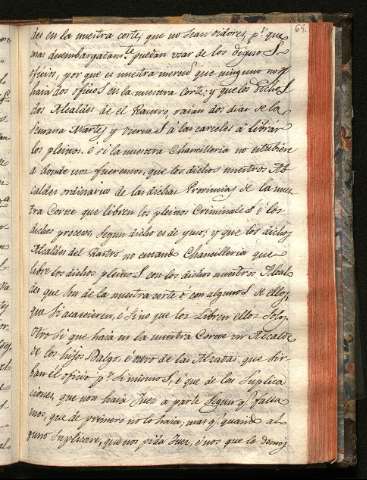 65.
des en la nuestra corte, que no sean oidores, p.r que
mas desembargatam.te puedan usar de los dichos
oficios, por que es nuestra merced que ninguno no
haia dos oficios en la nuestra Corte: y que los dichos
Alcaldes de el Rastro, vaian dos dias de la
semana Martes y viernes a las carceles a librar
los pleitos. e si la nuestra Chancilleria no estubiere
a donde nos fueremos, que los dichos nuestros Al-
caldes ordinarios de las dichas Provincias de la nues
tra Corte que libren los pleitos Criminales e los
dichos presos, segun dicho es de suso; y que los dichos
Alcaldes del Rastro no estando Chancilleria que
libre los dichos pleitos con los dichos nuestros Alcal
des que son de la nuestra corte ó con algunos de ellos,
que si acaecieren, e sino que los libren ellos solos,
Otro si que haia en la nuestra Corte un Alcalde
de los hijos Dalgo, e otro de las Alzadas: que sir-
van el oficio p.r si mismos, e que de las suplica
ciones, que non haia Juez a parte segun q. falla
mos, que de primero no lo havia; mas q. quando al-
guno suplicare, que nos pida Juez, e nos que lo demos